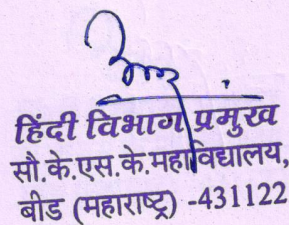 हिंदी विभाग प्रमुख
सौ.के.एस.के.महाविद्यालय,
बीड (महाराष्ट्र) -431122